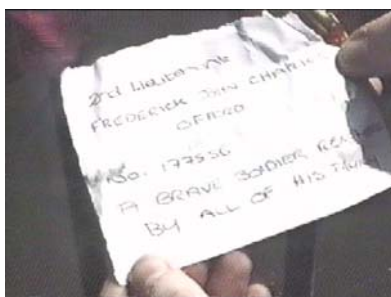 2nd Lieutenant
FREDERICK JOHN CHARLES
OFARD
No. 177556
A BRAVE SOLDIER
BY ALL OF HIS